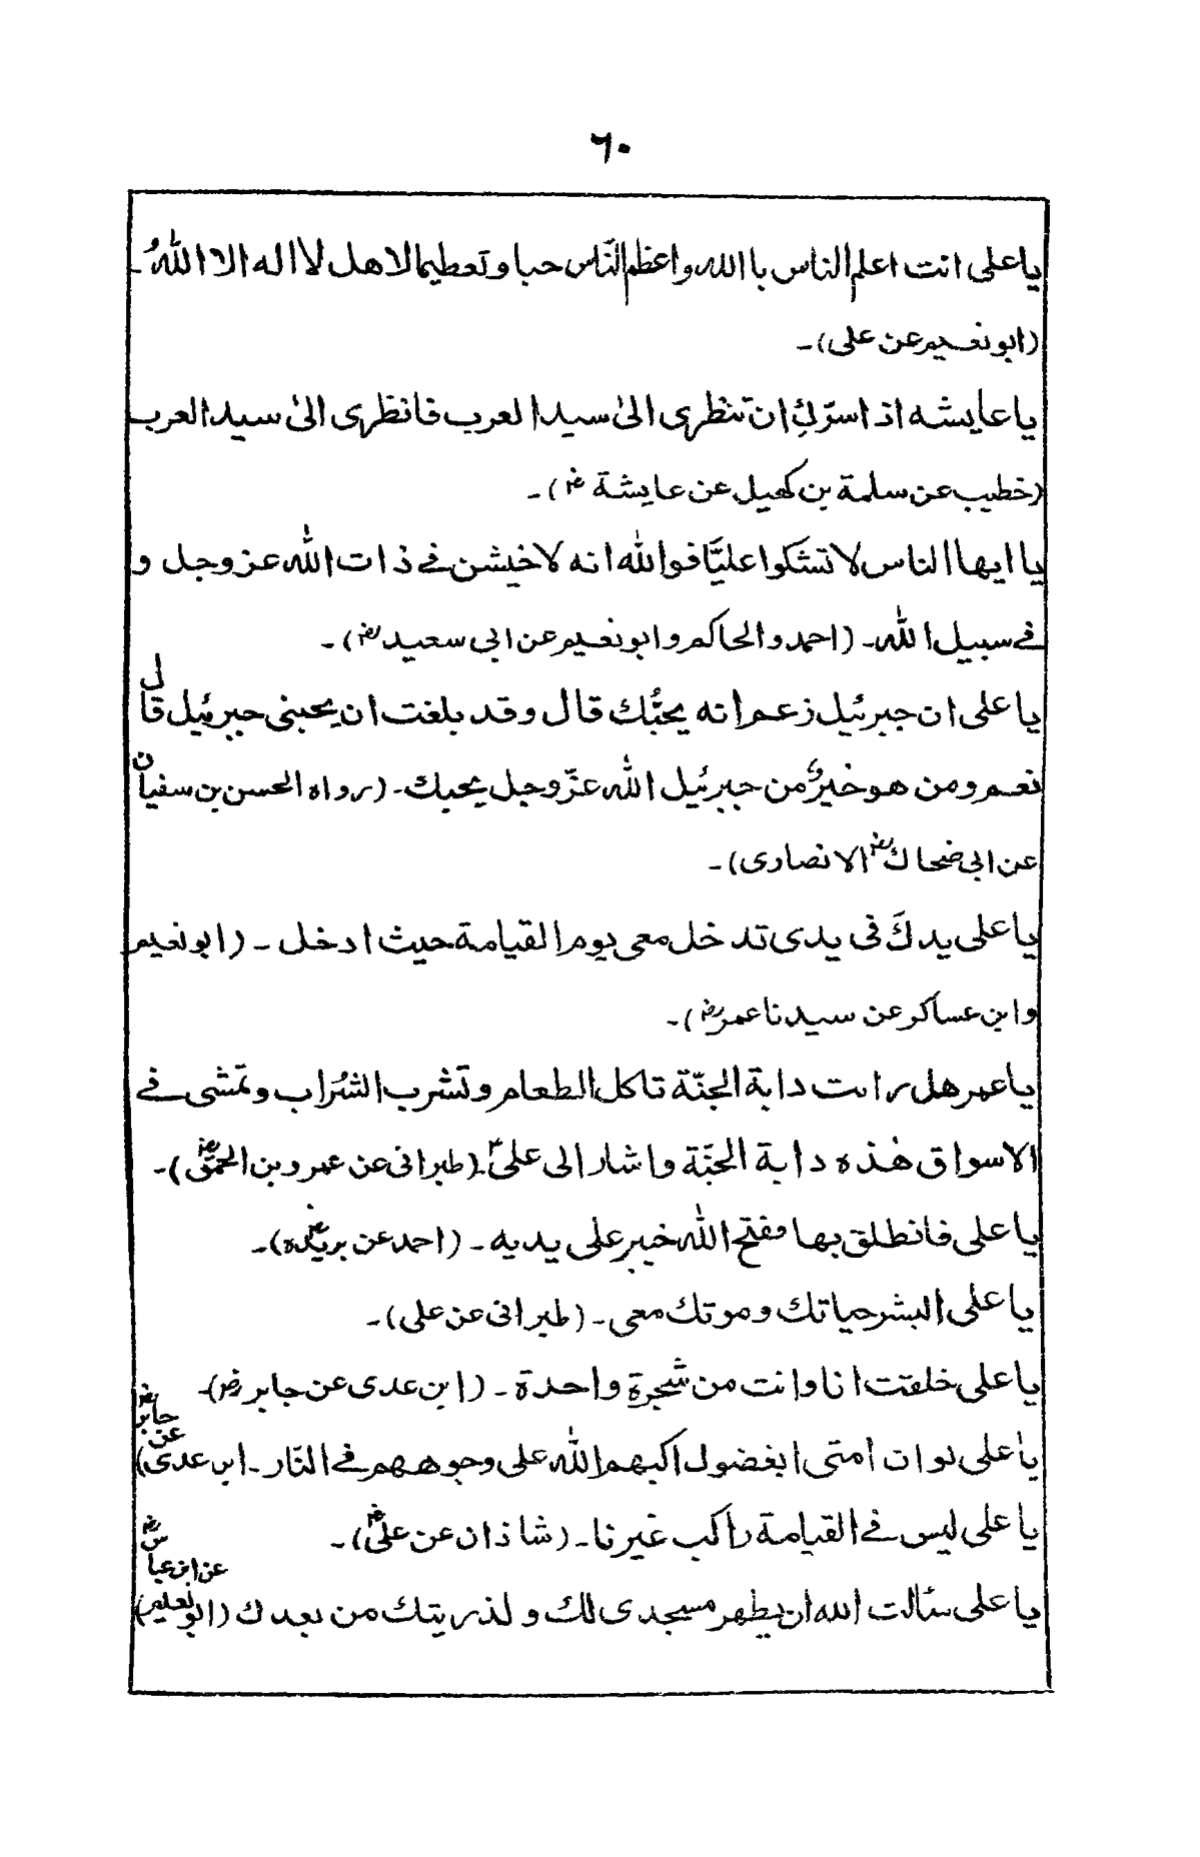 ٦٠
يا على انت اعلم الناس با الله واعظم النّاس حبا وتعظيما لاهل لا اله الا اللهُ۔
(ابونعيم عن على)۔
يا عايشه اذ اسرّكِ ان تنظرى الىٰ سيد العرب فانظرى الىٰ سيد العرب
(خطيب عن سلمة بن كهيل عن عايشة رض)۔
يا ايها الناس لا تشكوا عليًّا فوالله انه لاخيشن فے ذات الله عزوجل و
فے سبيل الله۔ (احمد والحاكم وابونعيم عن ابى سعيد رض)۔
يا على ان جبرئيل زعم انه يحبُّك قال وقد بلغت ان يحبنى جبرئيل قال
نعم ومن هو خيرٌ من جبرئيل الله عزّوجل يحبك۔ (رواه الحسن بن سفيان
عن ابى ضحاك رض الانصارى)۔
يا على يدكَ فى يدى تدخل معى يوم القيامة حيث ادخل ۔ (ابونعيم
وابن عساكر عن سيدنا عمر رض)۔
يا عمر هل رايت دابة الجنّة تاكل الطعام وتشرب الشَراب وتمشى فے
الاسواق هٰذه دابة الجنّة واشار الى علىؓ۔ (طبرانى عن عمرو بن الحمق رض)۔
يا على فانطلق بها مفتح الله خيبر على يديه ۔ (احمد عن بريده رض)۔
يا على البشر حياتك وموتك معى ۔ (طبرانى عن على)۔
يا على خلقت انا وانت من شجرةٍ واحدة ۔ (ابن عدى عن جابر رض)۔
يا على لو ان امتى ابغضوك اكبهم الله على وجوههم فے النّار ۔ ابن عدى عن جابر رض)
يا على ليس فے القيامة راكب غيرنا ۔ (شاذان عن على رض)۔
يا على سئالت الله ان يطهر مسجدى لك و لذريتك من بعدك (ابونعيم عن ابن عباس رض)